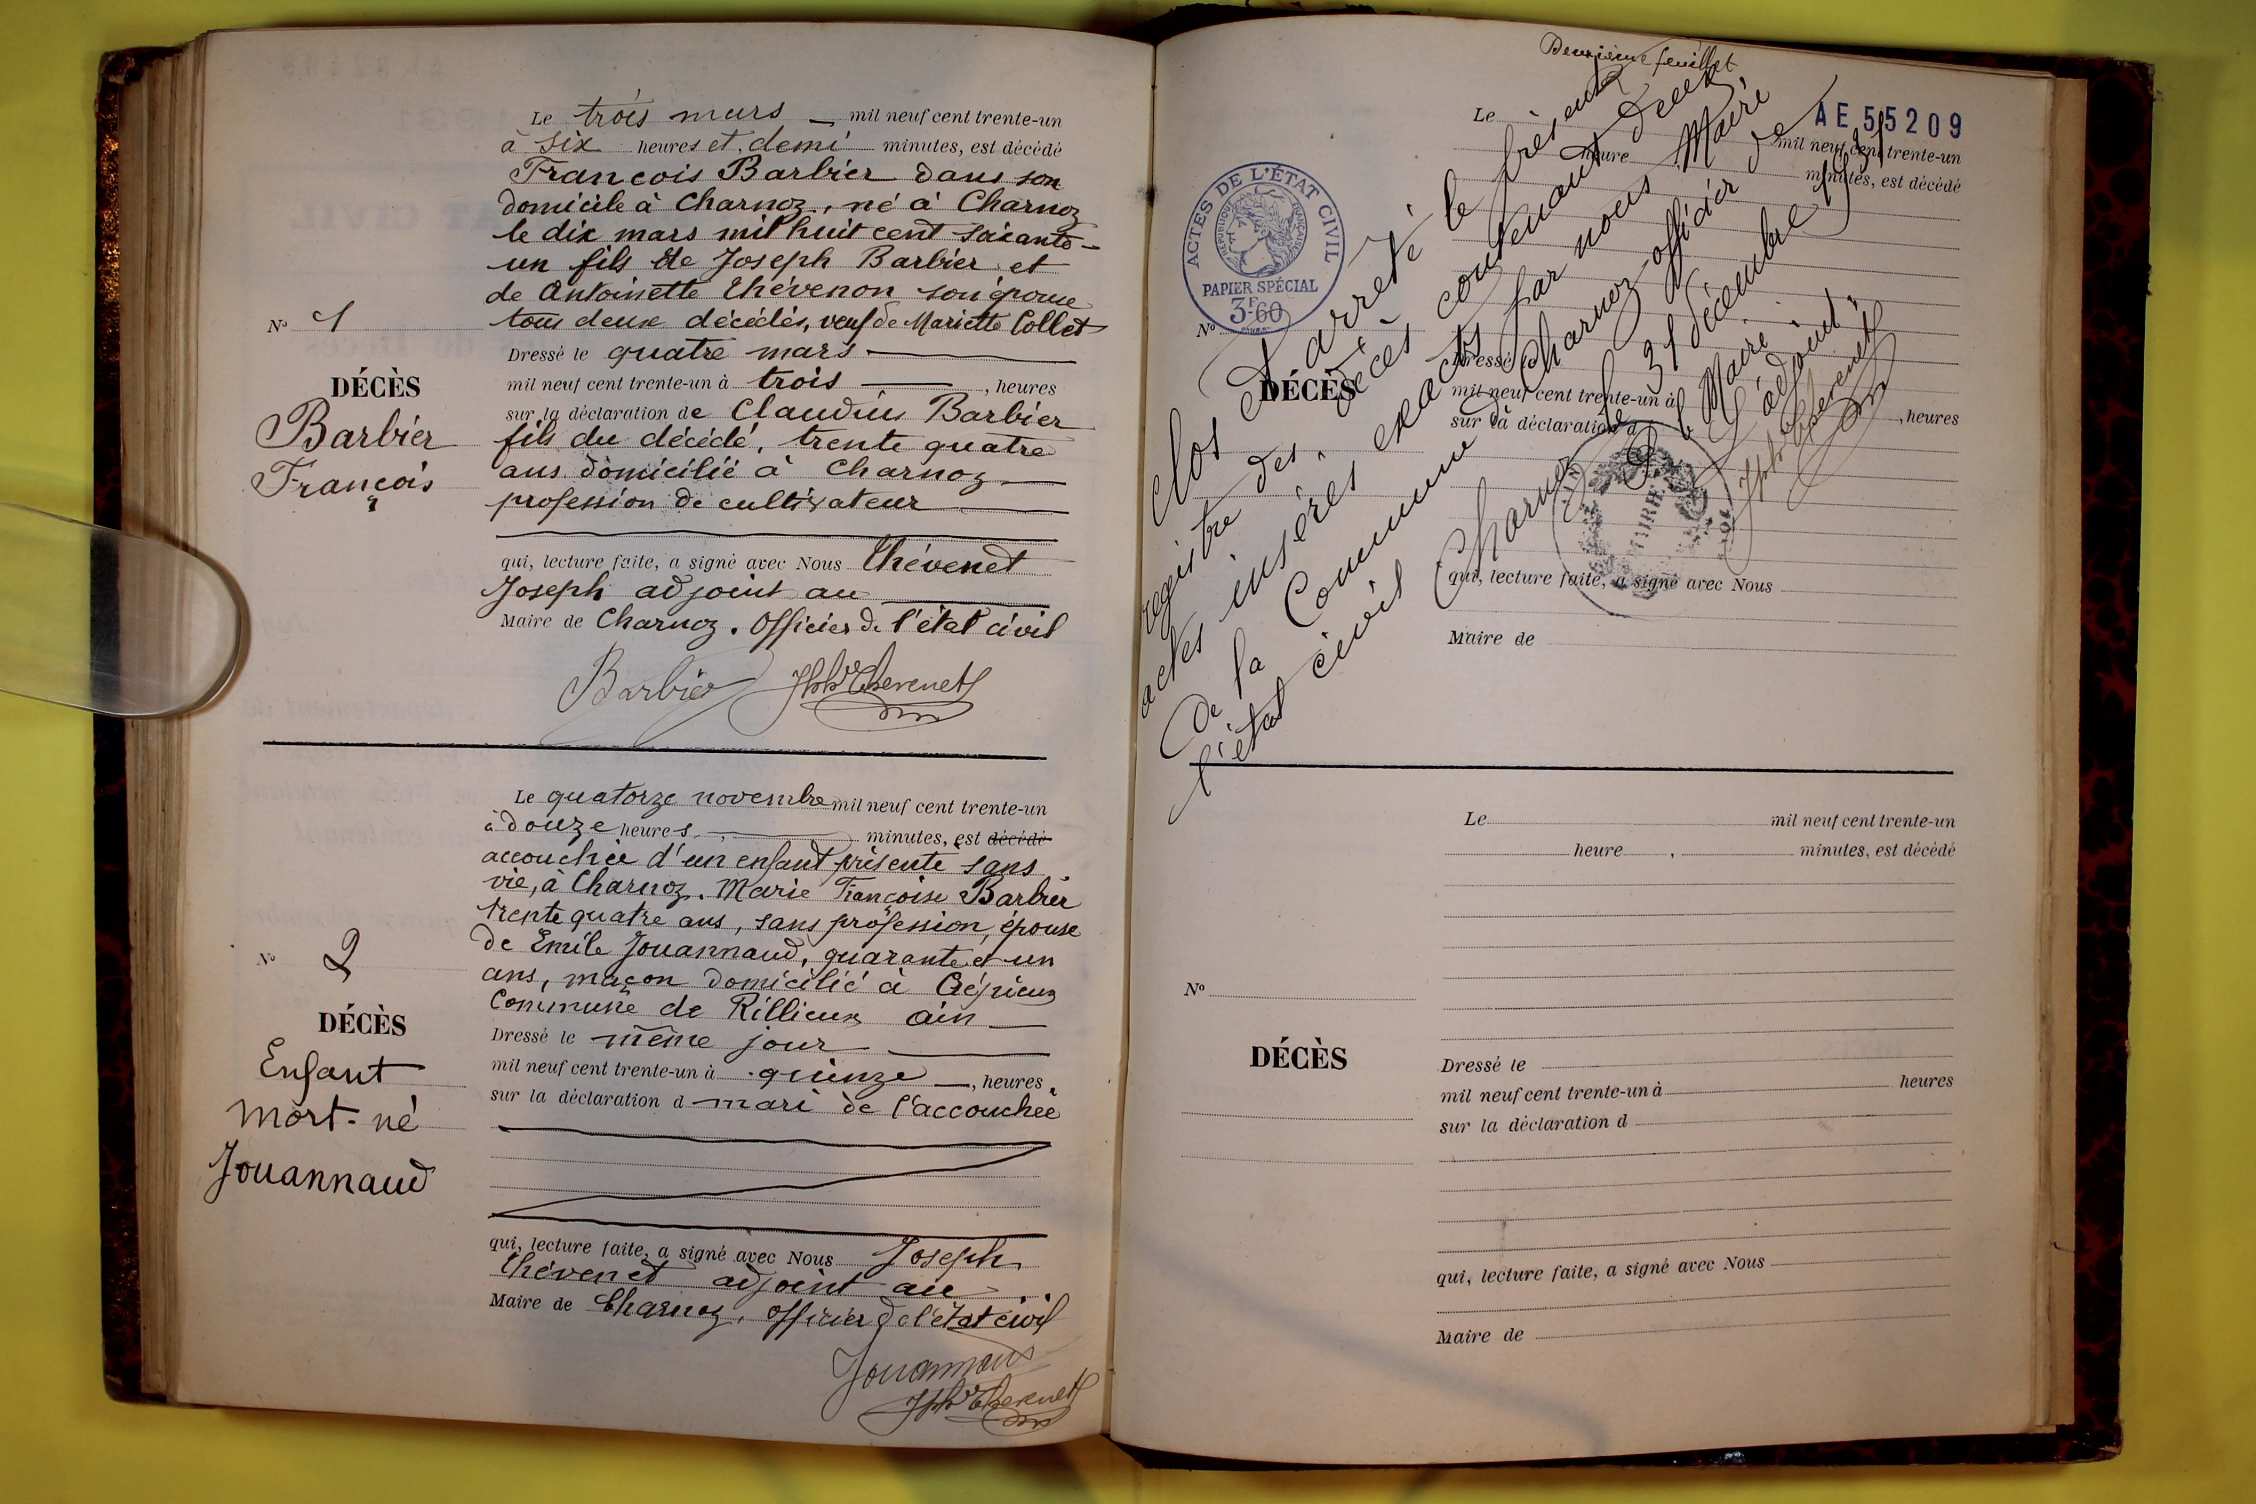 Le trois mars — mil neuf cent trente-un
à six heures et demi minutes, est décédé
François Barbier dans son
domicile à Charnoz, né à Charnoz
le dix mars mil huit cent soixante-
un fils de Joseph Barbier et
de Antoinette Thévenon son épouse
tous deux décédés, veuf de Mariette Collet
Dressé le quatre mars
mil neuf cent trente-un à trois , heures
sur la déclaration de Claudius Barbier
fils du décédé, trente quatre
ans domicilié à Charnoz
profession de cultivateur
qui, lecture faite, a signé avec Nous Thévenet
Joseph adjoint au
Maire de Charnoz. Officier de l'état civil
Barbier Jph Thevenet
N° 1
DÉCÈS
Barbier
François
Le quatorze novembre mil neuf cent trente-un
à douze heures minutes, est décédé
accouchée d'un enfant présenté sans
vie, à Charnoz. Marie Françoise Barbier
trente quatre ans, sans profession, épouse
de Emile Jouannaud, quarante et un
ans, maçon domicilié à Crépieux
Commune de Rillieux ain
Dressé le même jour
mil neuf cent trente-un à quinze , heures
sur la déclaration d mari de l'accouchée
qui, lecture faite, a signé avec Nous Joseph
Thévenet adjoint au
Maire de Charnoz. Officier de l'état civil
Jouannaud
Jph Thevenet
N° 2
DÉCÈS
Enfant
mort-né
Jouannaud
Deuxième feuillet
AE 55209
Le mil neuf cent trente-un
heure minutes, est décédé
ACTES DE L'ÉTAT CIVIL
RÉPUBLIQUE FRANÇAISE
PAPIER SPÉCIAL
3F60
N°
DÉCÈS
Dressé le
mil neuf cent trente-un à , heures
sur la déclaration d
qui, lecture faite, a signé avec Nous
Maire de
Clos et arrêté le présent
registre des décès contenant deux
actes insérés exacts par nous Maire
de la Commune de Charnoz officier de
l'état civil
Charnoz le 31 décembre 1931
P. le Maire
L'adjoint
Jph Thevenet
MAIRIE
AIN
Le mil neuf cent trente-un
heure , minutes, est décédé
N°
DÉCÈS
Dressé le
mil neuf cent trente-un à heures
sur la déclaration d
qui, lecture faite, a signé avec Nous
Maire de